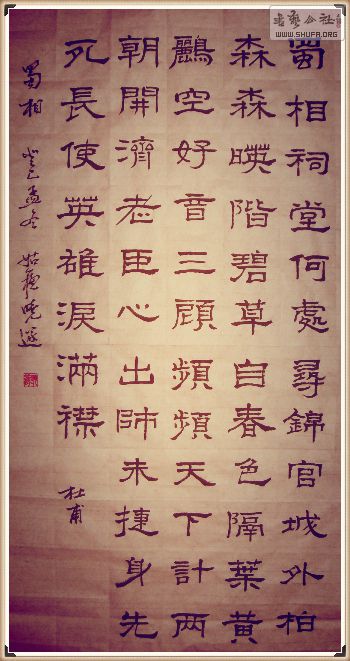 书艺公社
WWW.SHUFA.ORG
蜀相祠堂何處尋錦官城外柏
森森暎階碧草自春色隔葉黃
鸝空好音三顧頻頻天下計兩
朝開濟老臣心出師未捷身先
死長使英雄淚滿襟 杜甫
蜀相 癸巳孟冬 姑蘇曉